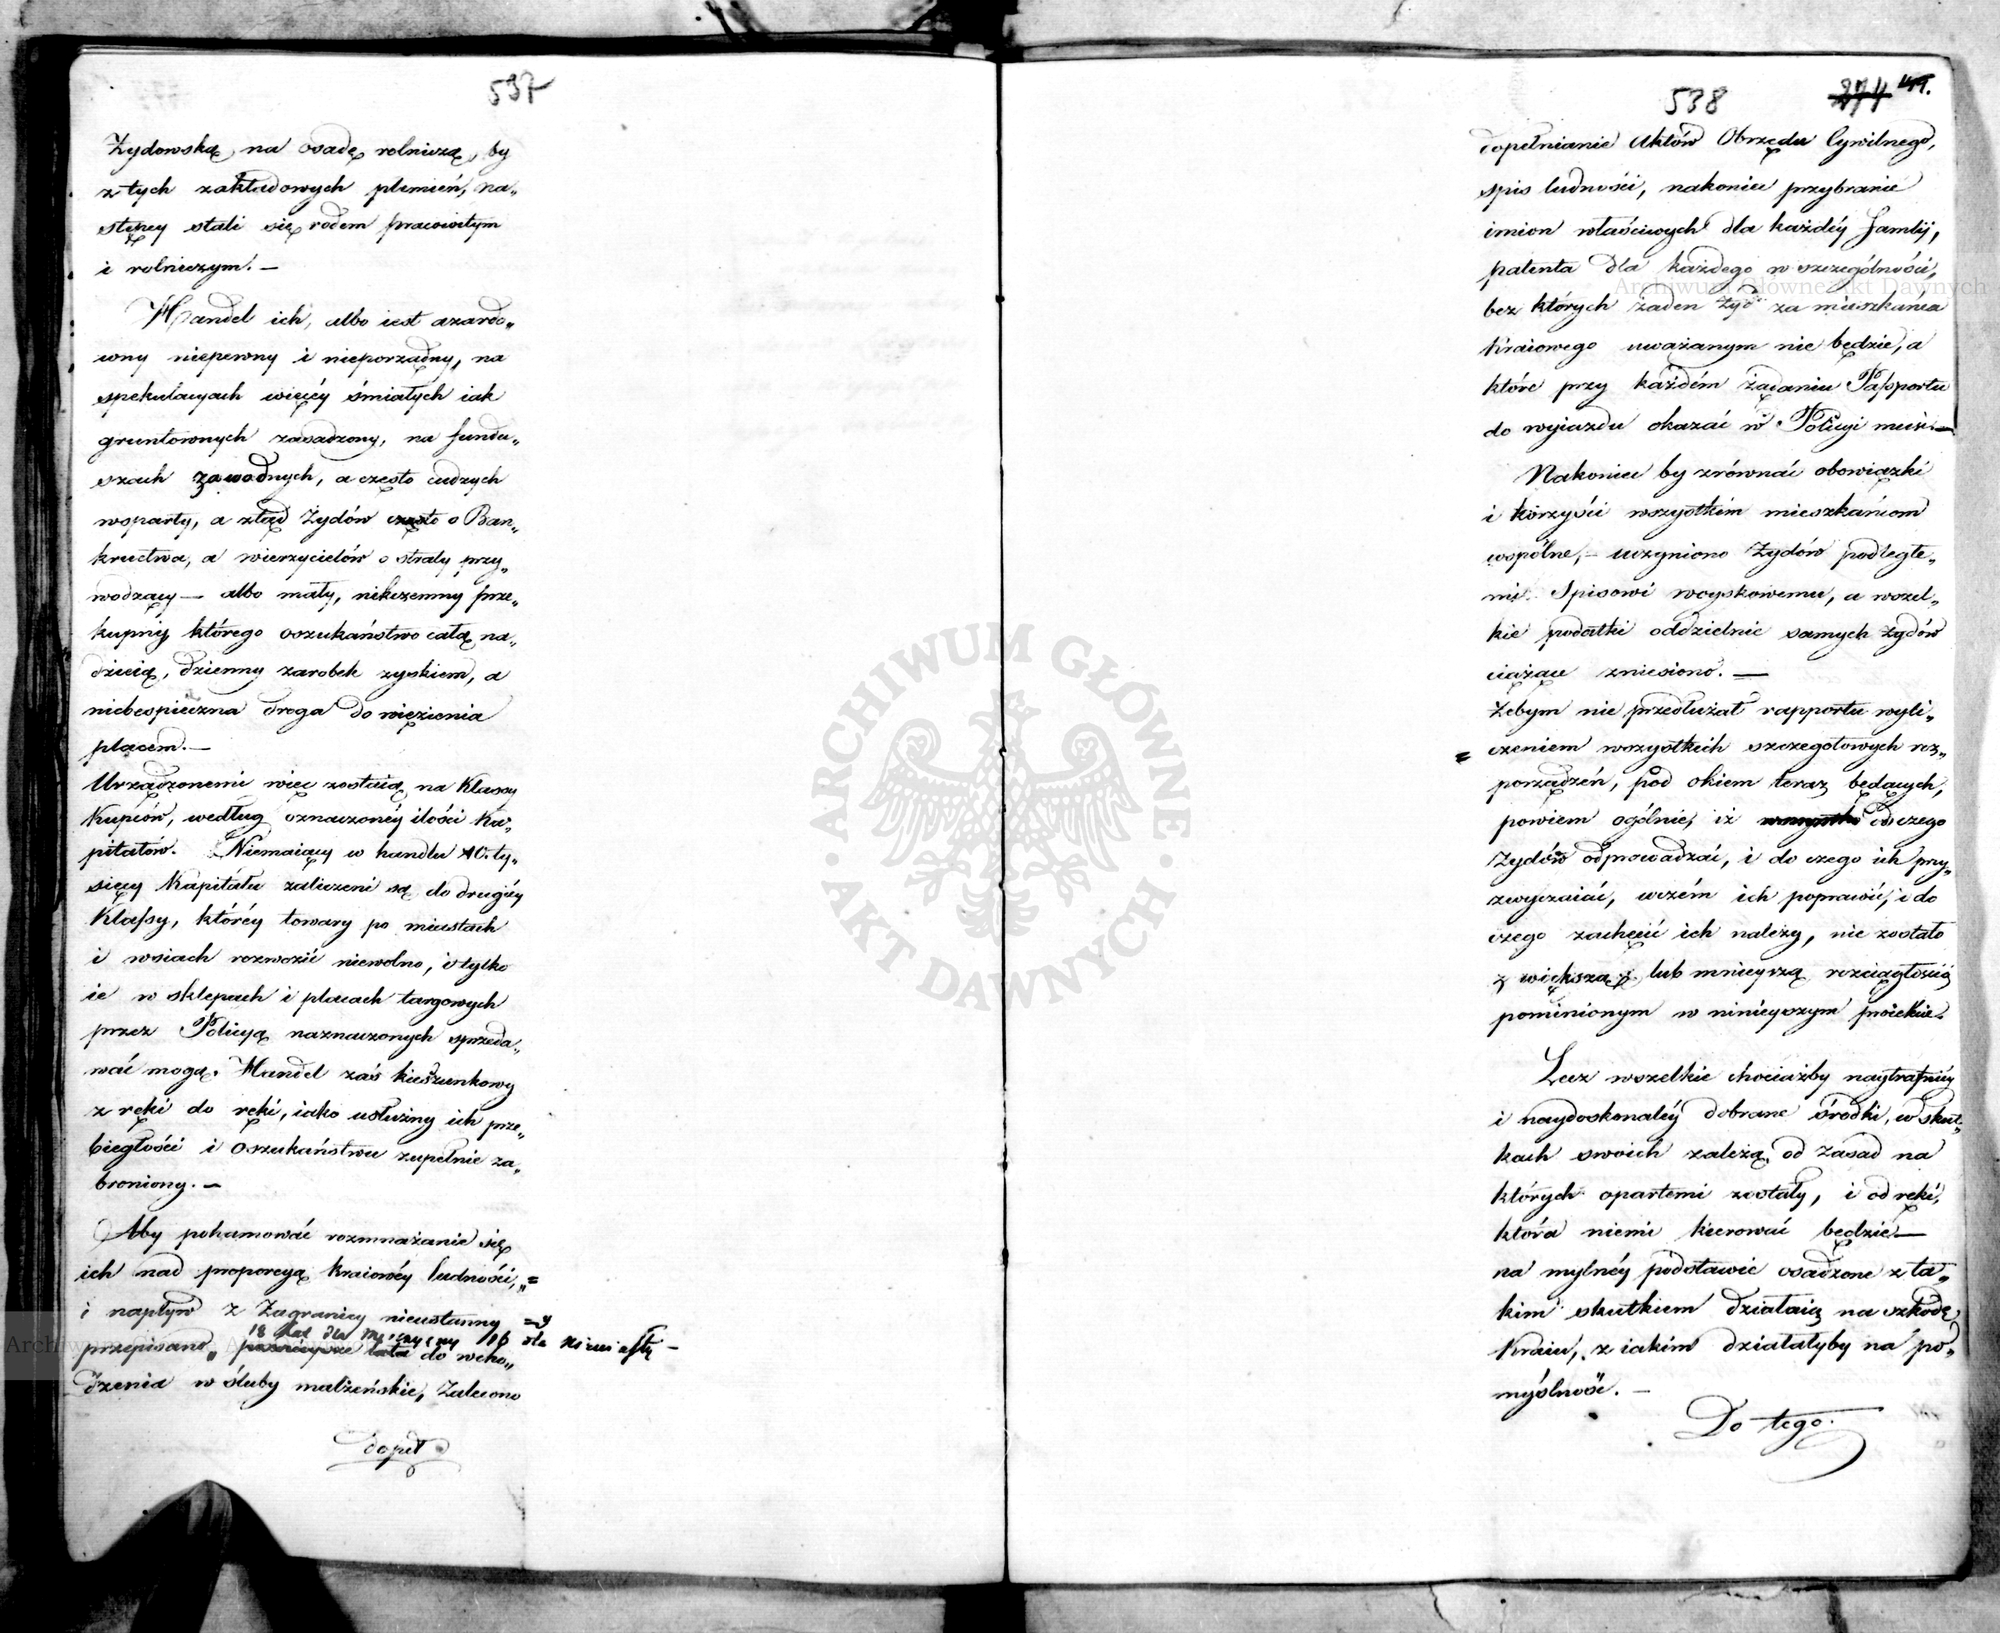 537
Żydowską, na osadę rolniczą, by
z tych zakładowych plemień, na„
stępcy stali się rodem pracowitym
i rolniczym. —
Handel ich, albo iest azardo„
wny niepewny i nieporządny, na
spekulacyach więcéy śmiałych iak
gruntownych zasadzony, na fundu„
szach zawodnych, a często cudzych
wsparty, a ztąd Żydów często o Ban„
kructwa, a wierzycielów o straty przy„
wodzący — albo mały, nikczemny prze„
kupny, którego oszukaństwo całą na„
dzieią, dzienny zarobek zyskiem, a
niebespieczna droga do więzienia
placem. —
Urządzonemi więc zostaią na Klassy
Kupców, według oznaczonéy ilości Ka„
pitałów. Niemaiący w handlu 10. ty„
sięcy Kapitału zaliczeni są do drugiéy
Klassy, któréy towary po miastach
i wsiach rozwozić niewolno, i tylko
ie w sklepach i placach targowych
przez Policyą naznaczonych sprzeda„
wać mogą. Handel zaś kieszunkowy
z ręki do ręki, iako usłużny ich prze„
biegłości i oszukaństwu zupełnie za„
broniony. —
Aby pohamować rozmnażanie się
ich nad proporcyą kraiowéy ludności, „=
i napływ z Zagranicy nieustanny =
18 lat dla męszczyzny 16 dla kobiety —
przepisano„ lata do wcho„
dzenia w śluby małżeńskie, Zalecono
dopeł
538
274
dopełnianie Aktów Obrzędu Cywilnego,
spis ludności, nakoniec przybranie
imion właściwych dla każdéy Familij,
patenta dla każdego w szczególności,
bez których żaden Żyd za mieszkańca
Kraiowego uważanym nie będzie, a
które przy każdém żądaniu Passportu
do wyiazdu okazać w Policyi musi. —
Nakoniec by zrównać obowiązki
i korzyści wszystkim mieszkańcom
wspólne, — uczyniono Żydów podległe„
mi Spisowi woyskowemu, a wszel„
kie podatki oddzielnie samych Żydów
ciążące zniesiono. —
Żebym nie przedłużał rapportu wyli„
= czeniem wszystkich szczegółowych roz„
porządzeń, pod okiem teraz będących,
powiem ogólnie, iż wszystko od czego
Żydów odprowadzać, i do czego ich przy„
zwyczaiać, wczém ich poprawić, i do
czego zachęcić ich należy, nie zostało
z większą lub mnieyszą rozciągłością
pominionym w ninieyszym proiekcie.
Lecz wszelkie chociażby naytrafniéy
i naydoskonaléy dobrane środki, w skut„
kach swoich zależą, od zasad na
których opartemi zostały, i od ręki,
która niemi kierować będzie —
na mylnéy podstawie osadzone z ta„
kim skutkiem działaią na szkodę
Kraiu, z iakim działałyby na po„
myślność. —
Do tego.
ARCHIWUM GŁÓWNE
AKT DAWNYCH
Archiwum Główne Akt Dawnych